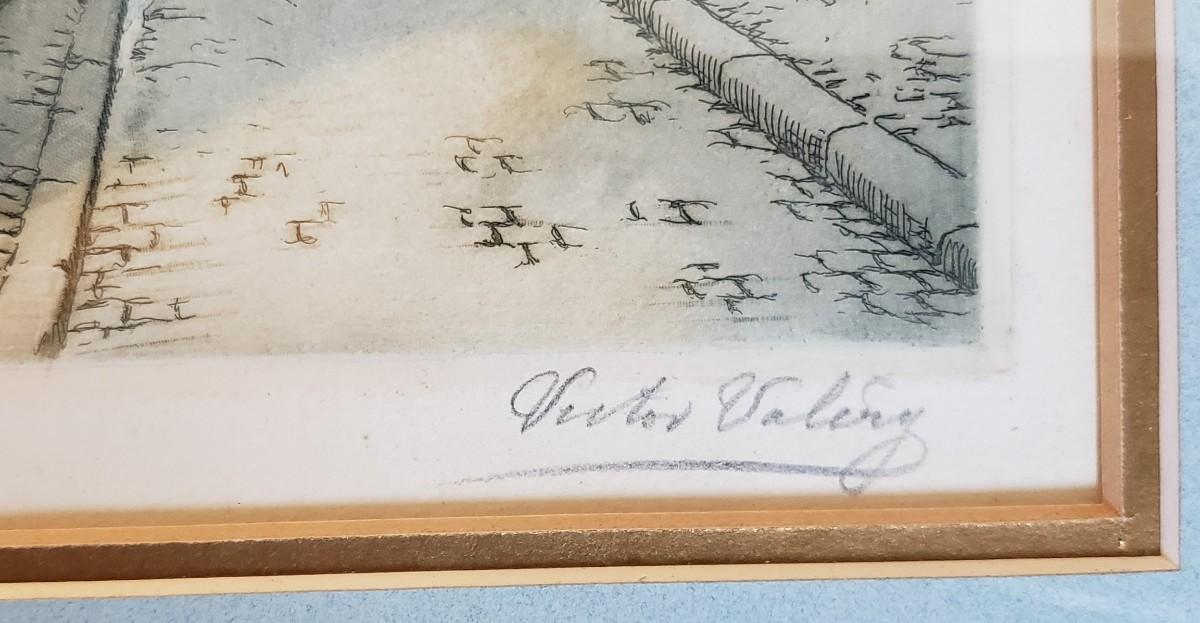 Victor Valéry